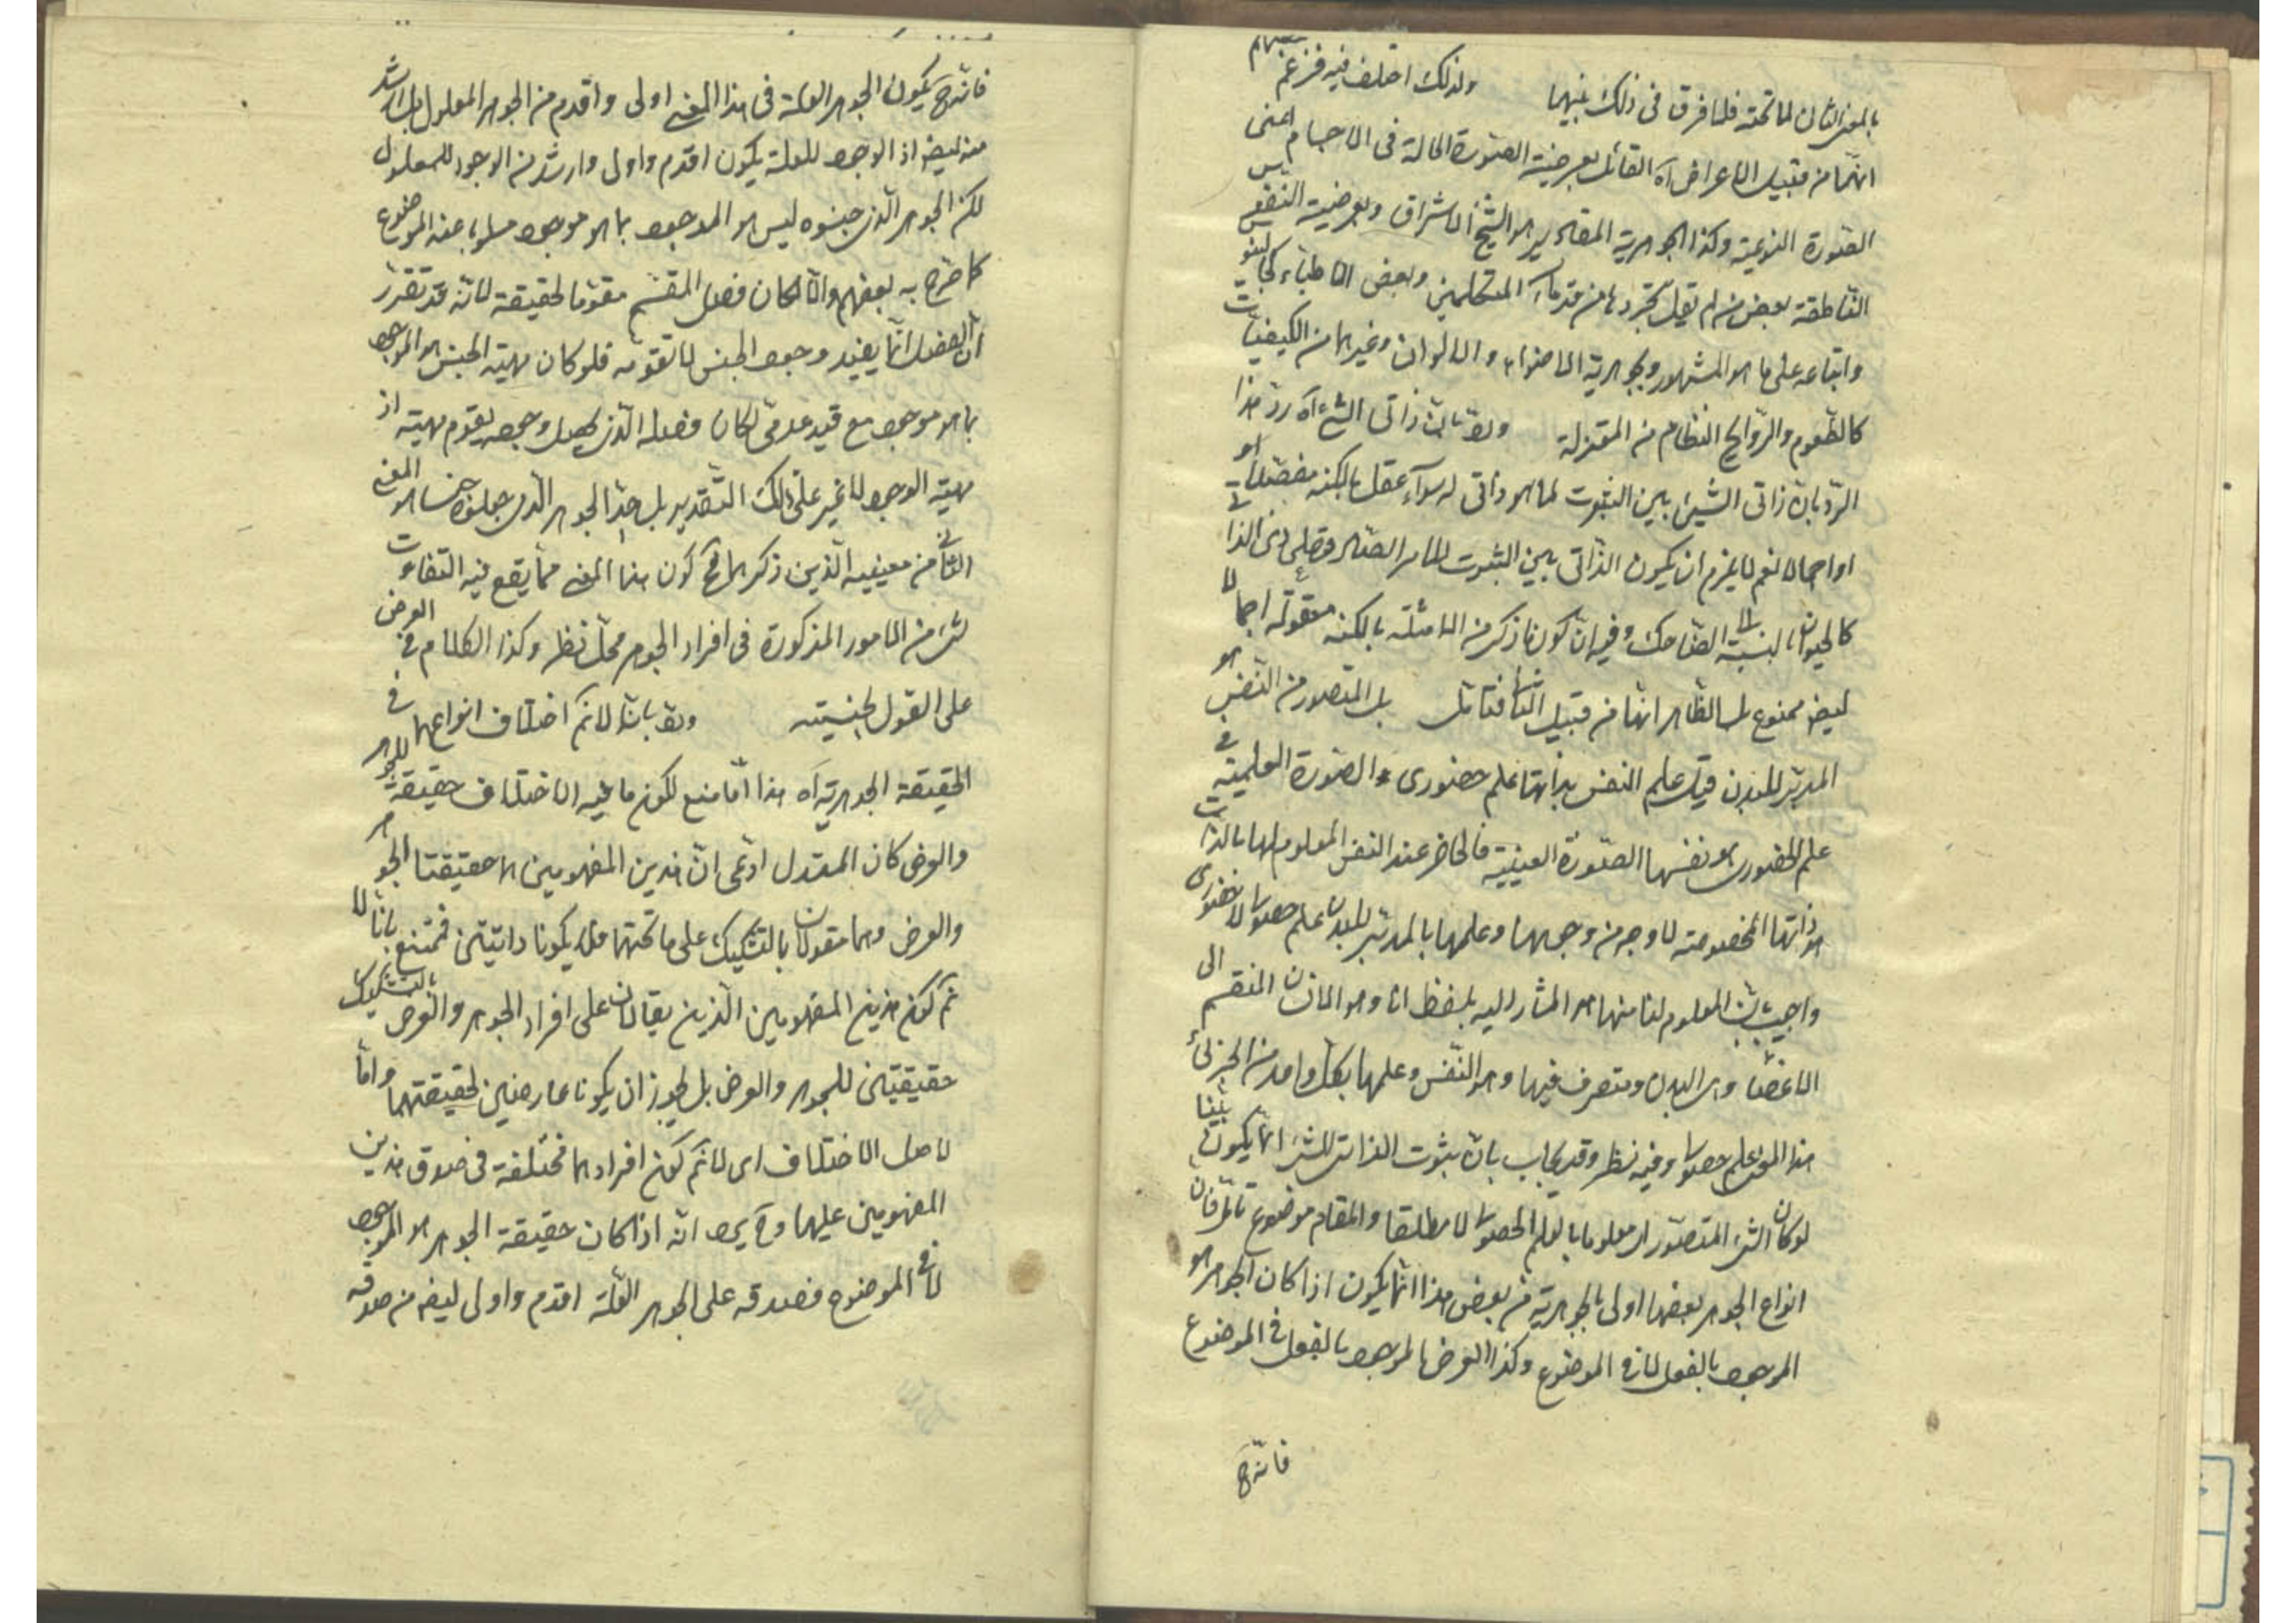 بالمعنى الثانى لما تحته فلا فرق فى ذلك بينهما ولذلك اختلف فيه فزعم بعضهم
انهما من قبيل الاعراض آه القائل بعرضية الصورة الحالة فى الاجسام اعنى
الصورة النوعية وكذا الجوهرية المقادير هو الشيخ الاشراق وبعرضية النفس
الناطقة بعض من لم يقل بتجردها من قدماء المتكلمين وبعض الاطباء كجالينوس
واتباعه على ما هو المشهور وبجوهرية الاضواء والالوان وغيرهما من الكيفيات
كالطعوم والروايح النظام من المعتزلة وقد بان ذاتى الشئ آه رد هذا
الرد بان ذاتى الشئ بين الثبوت لما هو ذاتى له سواء عقل بالكنه مفصلا او
او اجمالا نعم لا يلزم ان يكون الذاتى بين الثبوت للامر الصادق على ذى الذاتى
كالحيوان بالنسبة الى الضاحك وفيه ان كون ما ذكر من الامثلة بالكنه معقولة اجمالا
ايض ممنوع بل الظاهر انها من قبيل الثانى فتامل بل المتصور من النفس هو
المدبر للبدن قيل علم النفس بذاتها علم حضورى والصورة العلمية فى
علم الحضورى هو نفسها الصورة العينية فالحاضر عند النفس المعلوم لها بالذات
هو ذاتها المخصوصة لا وجه من وجوهها وعلمها بالمدبر للبدن علم حصولى لا حضورى
واجيب بان المعلوم لنا منها هو المشار اليه بلفظ انا وهو الانسان المنقسم الى
الاعضاء وهى البدن ومتصرف فيها وهو النفس وعلمها بكل واحد من الجزئى
هذا المعنى علم حصولى وفيه نظر وقد يجاب بان ثبوت الذاتى للشئ انما يكون بينا
لو كان الشئ المتصور او معلوما بالعلم الحصولى لا مطلقا والمقام موضوع تامل فان
انواع الجوهر بعضها اولى بالجوهرية من بعض هذا انما يكون اذا كان الجوهر هو
الموجود بالفعل لا فى الموضوع وكذا العرض الموجود بالفعل فى الموضوع
فانه ح
فانه ح يكون الجوهر العلة فى هذا المعنى اولى واقدم من الجوهر المعلول بل اشد
منه ايض اذ الوجود للعلة يكون اقدم واولى واشد من الوجود للمعلول
لكن الجوهر الذى جنسوه ليس هو الموجود بما هو موجود مسلوبا عنه الموضوع
كما صرح به بعضهم والا لكان فصل المقسم مقوما لحقيقة لانه قد تقرر
ان الفصل انما يفيد وجود الجنس لا تقومه فلو كان مهية الجنس هو الموجود
بما هو موجود مع قيد عدمى لكان فصله الذى يحصل وجوده يقوم مهيته اذ
مهيته الوجود لا غير على ذلك التقدير بل هذا الجوهر الذى جعلوه جنسا هو المعنى
الثانى من معنييه الذين ذكرهما فح كون هذا المعنى مما يقع فيه التفاوت
لشئ من الامور المذكورة فى افراد الجوهر محل نظر وكذا الكلام فى العرض
على القول بجنسيته وقد بانا لا نم اختلاف انواعهما فى
الحقيقة الجوهرية آه هذا اما منع لكون ما فيه الاختلاف حقيقة للجوهر
والعرض كان المستدل ادعى ان هذين المفهومين هو حقيقتا الجوهر
والعرض وهما مقولان بالتشكيك على ما تحتهما فلا يكونا ذاتيتين فمنع بانا لا
نم كون هذين المفهومين الذين يقالان على افراد الجوهر والعرض بالتشكيك
حقيقتين للجوهر والعرض بل يجوز ان يكونا عارضين لحقيقتهما واما
لاصل الاختلاف اى لا نم كون افرادهما مختلفة فى صدق هذين
المفهومين عليهما وح يرد انه اذا كان حقيقة الجوهر هو الموجود
لا فى الموضوع فصدقه على الجوهر العلة اقدم واولى ايض من صدقه